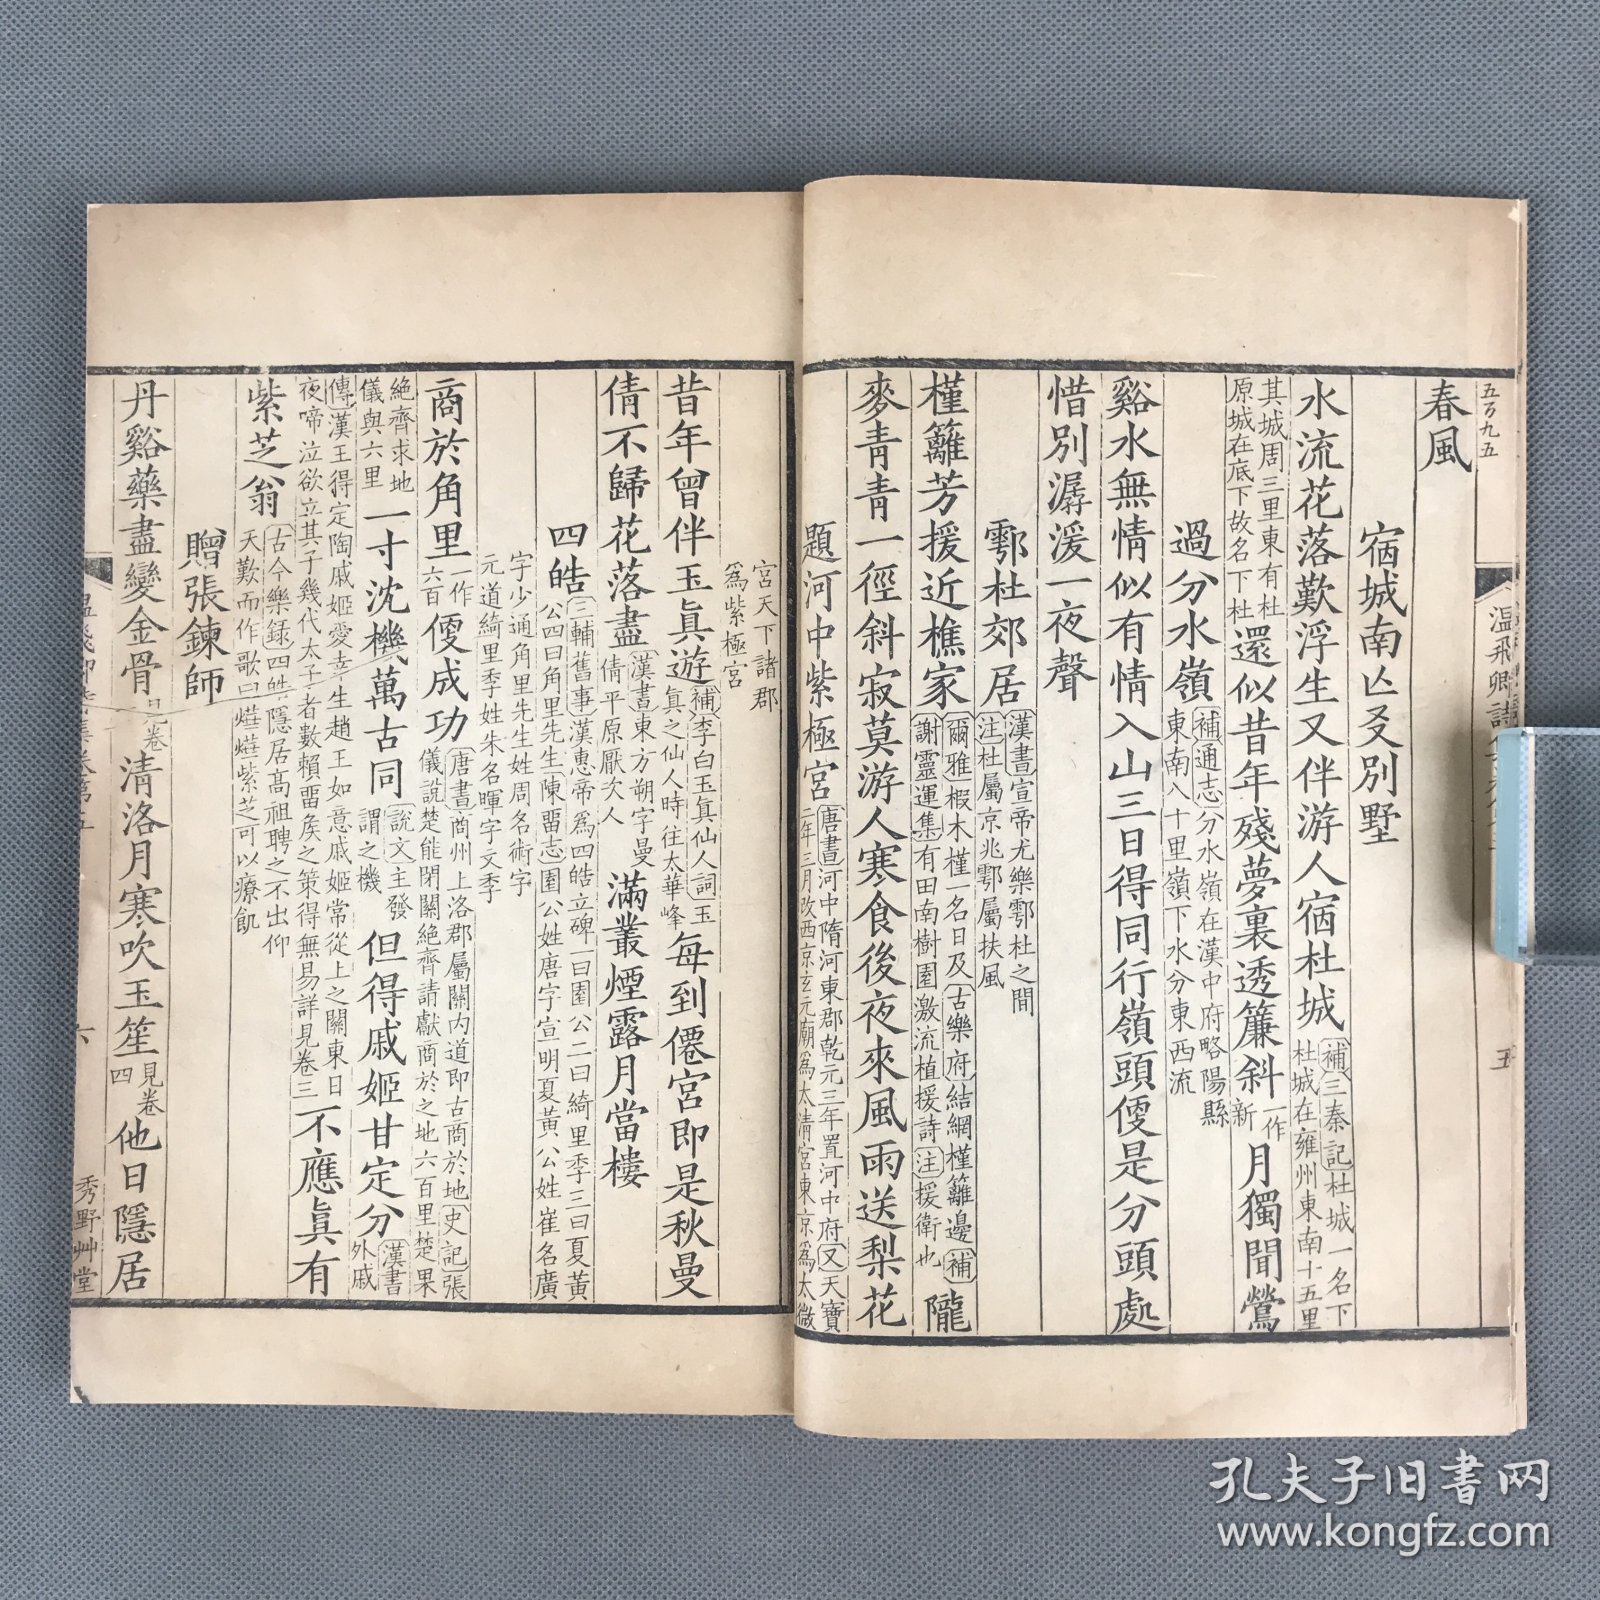 五百九五
溫飛卿詩集
五
春風
宿城南亾友別墅
水流花落歎浮生又伴游人宿杜城補三秦記杜城一名下杜城在雍州東南十五里
其城周三里東有杜原城在底下故名下杜還似昔年殘夢裏透簾斜一作新月獨聞鶯
過分水嶺補通志分水嶺在漢中府略陽縣東南八十里嶺下水分東西流
谿水無情似有情入山三日得同行嶺頭便是分頭處
惜別潺湲一夜聲
鄠杜郊居漢書宣帝尤樂鄠杜之間注杜屬京兆鄠屬扶風
槿籬芳援近樵家爾雅椴木槿一名日及古樂府結網槿籬邊補謝靈運集有田南樹園激流植援詩注援衛也隴
麥青青一徑斜寂莫游人寒食後夜來風雨送梨花
題河中紫極宮唐書河中隋河東郡乾元三年置河中府又天寶二年三月改西京玄元廟爲太清宮東京爲太微
宮天下諸郡爲紫極宮
昔年曾伴玉眞遊補李白玉眞仙人詞玉眞之仙人時往太華峰每到僊宮即是秋曼
倩不歸花落盡漢書東方朔字曼倩平原厭次人滿叢煙露月當樓
四皓三輔舊事漢惠帝爲四皓立碑一曰園公二曰綺里季三曰夏黃公四曰角里先生陳留志園公姓唐字宣明夏黃公姓崔名廣
字少通角里先生姓周名術字元道綺里季姓朱名暉字文季
商於角里一作六百便成功唐書商州上洛郡屬關內道即古商於地史記張儀說楚能閉關絕齊請獻商於之地六百里楚果
絕齊求地儀與六里一寸沈機萬古同說文主發謂之機但得戚姬甘定分漢書外戚
傳漢王得定陶戚姬愛幸生趙王如意戚姬常從上之關東日夜啼泣欲立其子幾代太子者數賴留矦之策得無易詳見卷三不應眞有
紫芝翁古今樂録四皓隱居高祖聘之不出仰天歎而作歌曰燁燁紫芝可以療飢
贈張鍊師
丹谿藥盡變金骨見卷清洛月寒吹玉笙見卷四他日隱居
六
秀野艸堂
孔夫子旧书网
www.kongfz.com